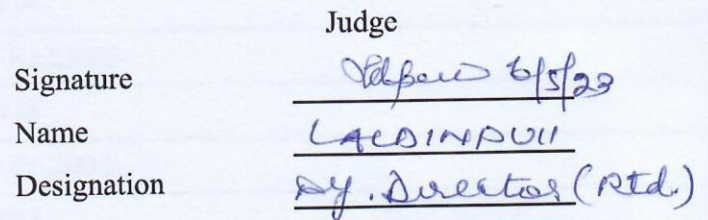 Judge
Signature 6/5/23
Name LALDINPUII
Designation Dy. Director (Rtd.)